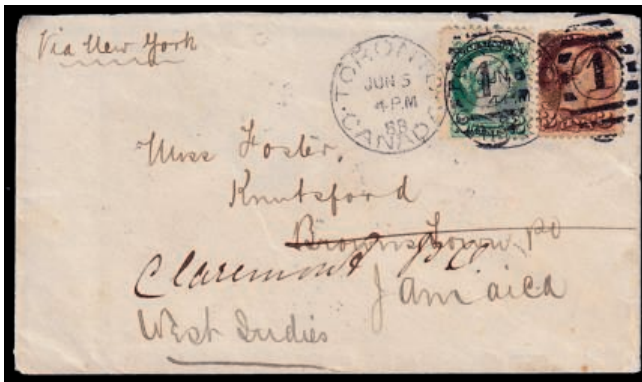 Via New York
TORONTO
JUN 5
4 PM
88
CANADA
1
1
Miss Foster,
Knutsford
Brownstown PO
Claremont PO
Jamaica
West Indies